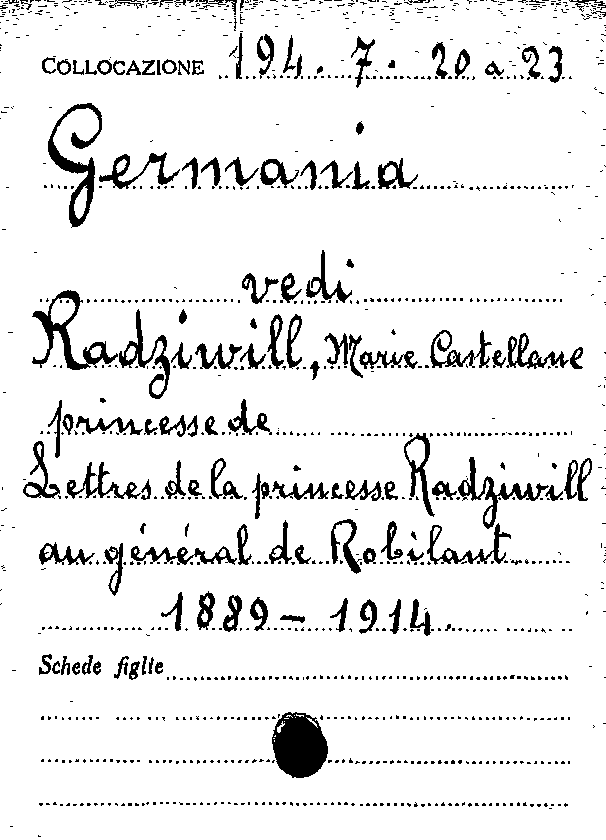 COLLOCAZIONE 194. 7. 20 a 23
Germania
vedi
Radziwill, Marie Castellane
princesse de
Lettres de la princesse Radziwill
au général de Robilant
1889 - 1914.
Schede figlie